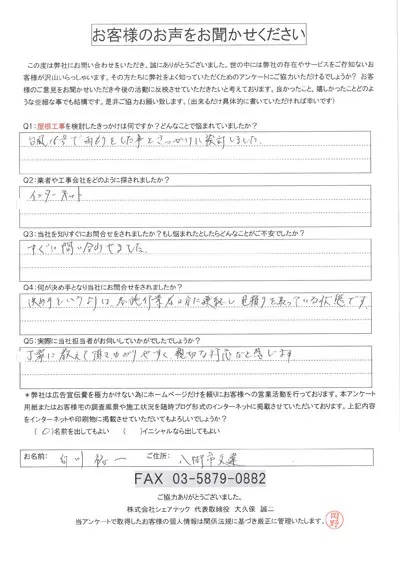 お客様のお声をお聞かせください
この度は弊社にお問い合わせをいただき、誠にありがとうございました。世の中には弊社の存在やサービスをご存知ないお
客様が沢山いらっしゃいます。その方たちに弊社をよく知っていただくためのアンケートにご協力いただけるでしょうか？ お客
様のご意見をお聞かせいただき今後の活動に反映させていただきたいと考えております。良かったこと、嬉しかったことどのよ
うな些細な事でも結構です。是非ご協力お願い致します。（出来るだけ具体的に書いていただければ幸いです）
Q1：屋根工事を検討したきっかけは何ですか？どんなことで悩まれていましたか？
台風15号で雨もりをした事をきっかけに検討しました。
Q2：業者や工事会社をどのように探されましたか？
インターネット
Q3：当社を知りすぐにお問合せをされましたか？もし悩まれたとしたらどんなことがご不安でしたか？
すぐに問い合わせました。
Q4：何が決め手となり当社にお問合せをされましたか？
決め手というよりは、各施作業者の方に連絡し見積りを取っている状態です。
Q5：実際に当社担当者がお伺いしていかがでしたでしょうか？
丁寧に教えて頂き分かりやすく、親切な対応だと感じます
＊弊社は広告宣伝費を極力かけない為にホームページだけを頼りにお客様への営業活動を行っております。本アンケート
用紙またはお客様宅の調査風景や施工状況を随時ブログ形式のインターネットに掲載させていただいております。上記内容
をインターネットや印刷物に掲載させていただいてもよろしいでしょうか？
（○）名前を出してもよい （ ）イニシャルなら出してもよい
お名前： ご住所： 八街市文違
FAX 03-5879-0882
ご協力ありがとうございました。
株式会社シェアテック 代表取締役 大久保 誠二
当アンケートで取得したお客様の個人情報は関係法規に基づき厳正に管理いたします。